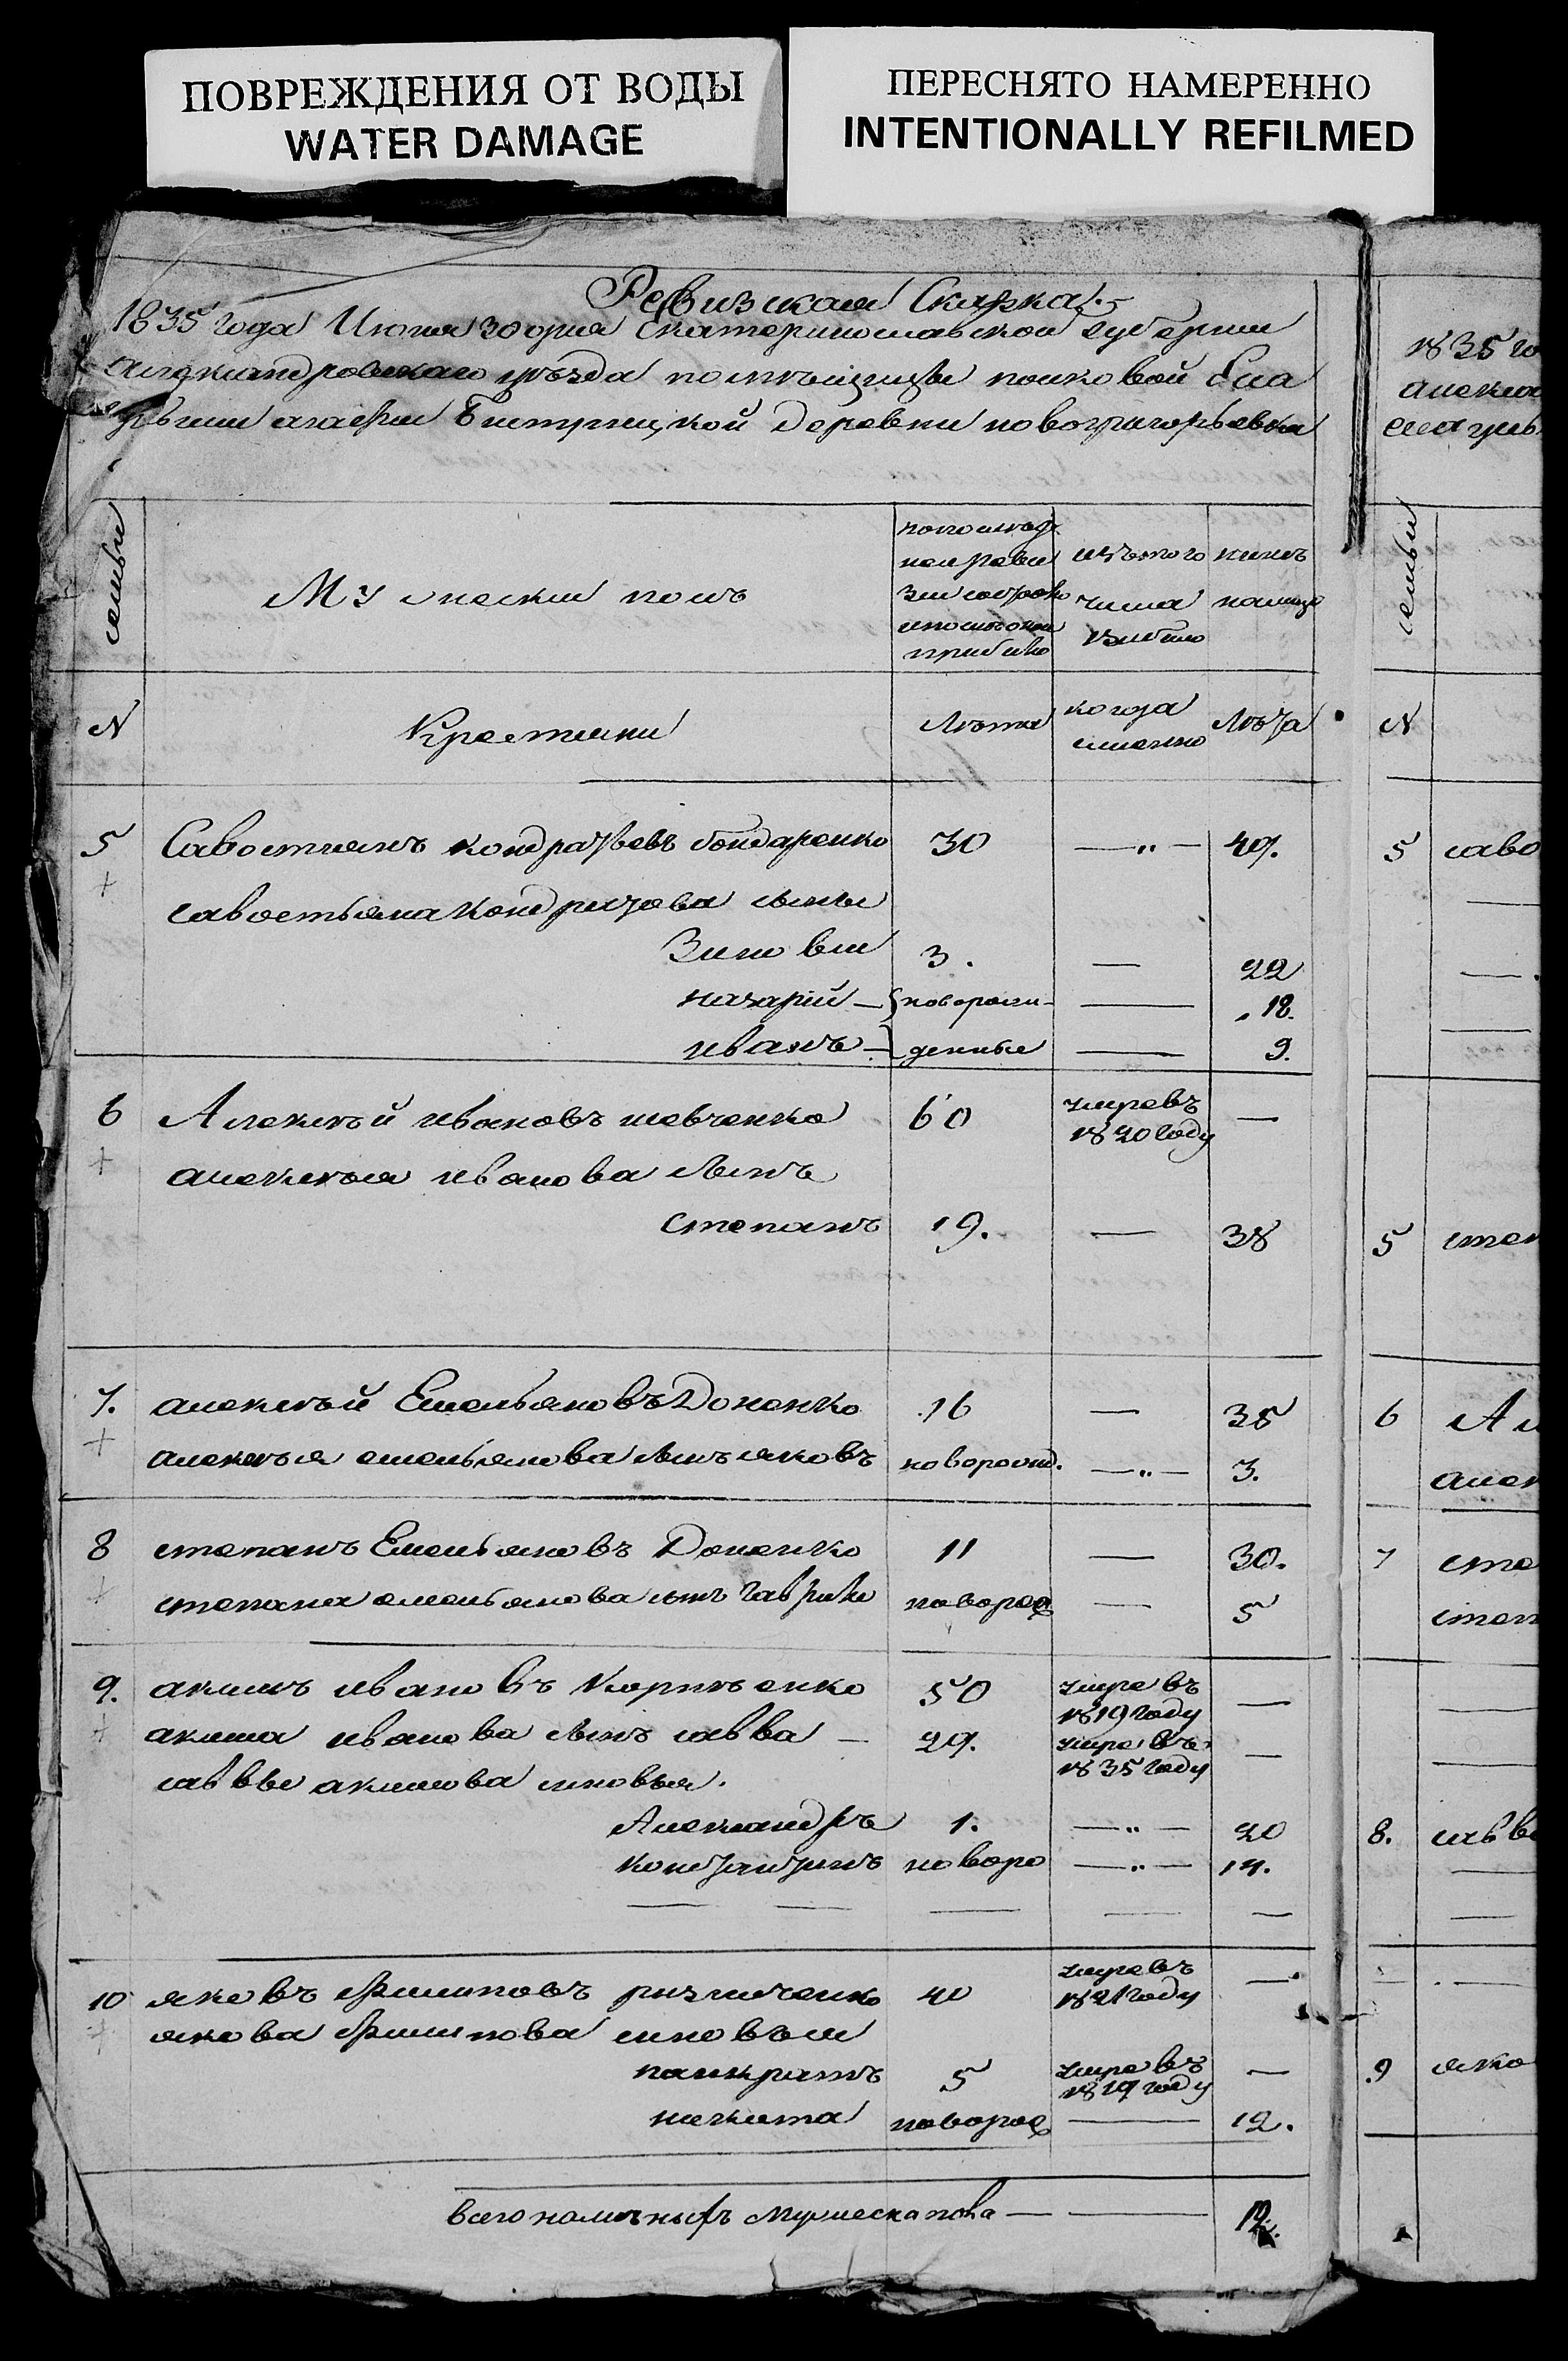 ПОВРЕЖДЕНИЯ ОТ ВОДЫ
WATER DAMAGE
ПЕРЕСНЯТО НАМЕРЕННО
INTENTIONALLY REFILMED
Ревизская Скаска.
1835 года Июня 30 дня Екатеринославской губернии
александровскаго уѣзда помѣщицы полковой
агафии Бистрицкой Деревни новогригорьевки
семьи
Мужескии полъ
по последней ревизии состояло и после оной прибыло
изъ того числа выбыло
нинѣ налице
N
Крестяни
Лѣта
когда именно
Лѣта
5 Савостиянъ кондратьевъ бондаренко 30 —„— 49.
савостьяна кондратова сыны
Зиновии 3. — 22
назарий — новорож- — 18.
иванъ — денные — 9.
6 Алексѣй ивановъ шевченко 60 умре въ 1820 году —
алексѣя иванова сынъ
степанъ 19. — 38
7. алексѣй Емельяновъ Доненко 16 — 35
алексѣя емельянова сынъ яковъ новорожд. —„— 3.
8 степанъ Емельяновъ Доненко 11 — 30.
степана емельянова сынъ гаврило новород — 5
9. акимъ ивановъ Корнѣенко 50 умре въ 1819 году —
акима иванова сынъ савва — 29. умре въ 1835 году —
саввы акимова сновья.
Александръ 1. —„— 20
константинъ новоро —„— 14.
10 яковъ филиповъ 40 умре въ 1821 году —
якова филипова сновья
панкратъ 5 умре въ 1819 году —
никита новород — 12.
всего наличныхъ мужеска пола — 12.
1835 го
алекса
семьи
N
5 саво
5 степ
6 Ал
алек
7 сте
степ
8. савв
9 яко